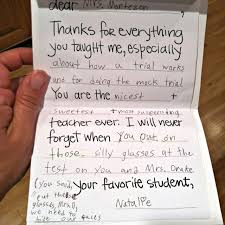 dear Mrs. Monteson
Thanks for everything
you taught me, especially
about how a trial works
and for doing the mock trial
You are the nicest +
sweetest + most supporting
teacher ever. I will never
forget when you put on
those silly glasses at the
test on you and Mrs. Drake
(you said, your favorite student,
put these
glasses, Mrs. D, Natalie
we need to
hide our faces